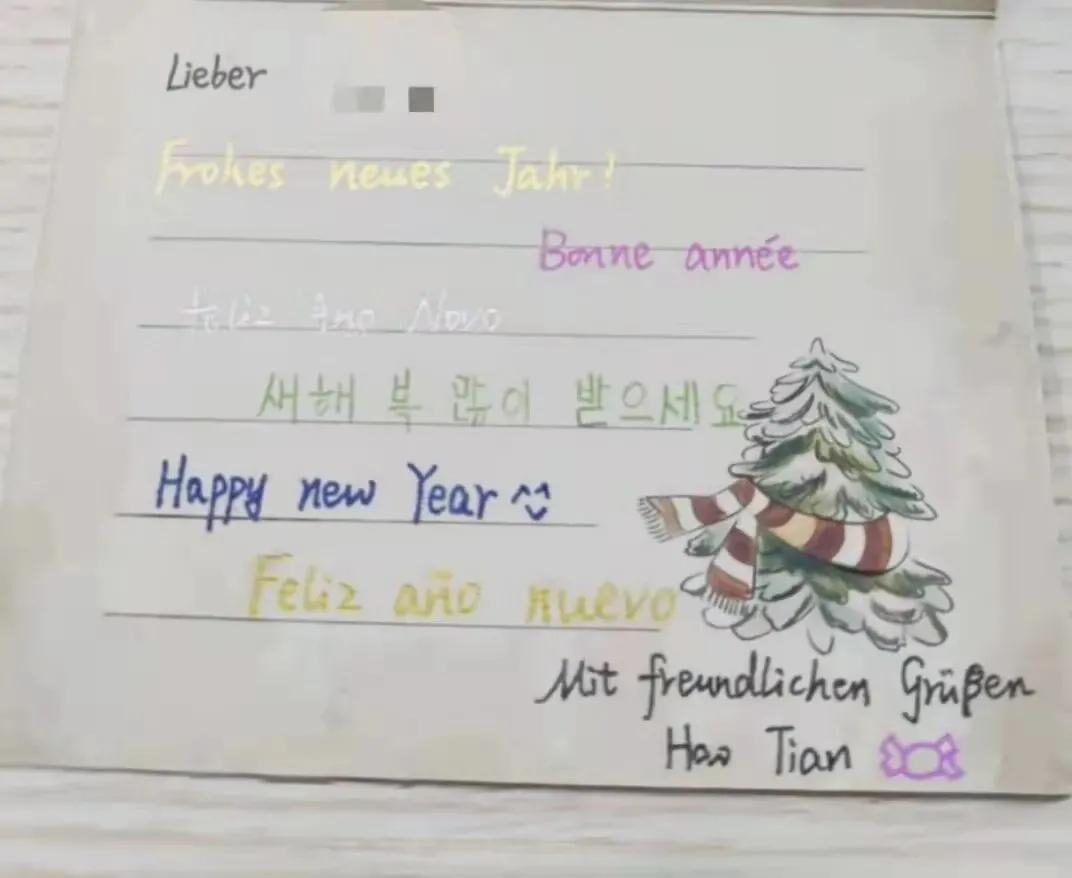 Lieber
Frohes neues Jahr!
Bonne année
Feliz Ano Novo
새해 복 많이 받으세요
Happy new Year ^^
Feliz año nuevo
Mit freundlichen Grüßen
Hao Tian